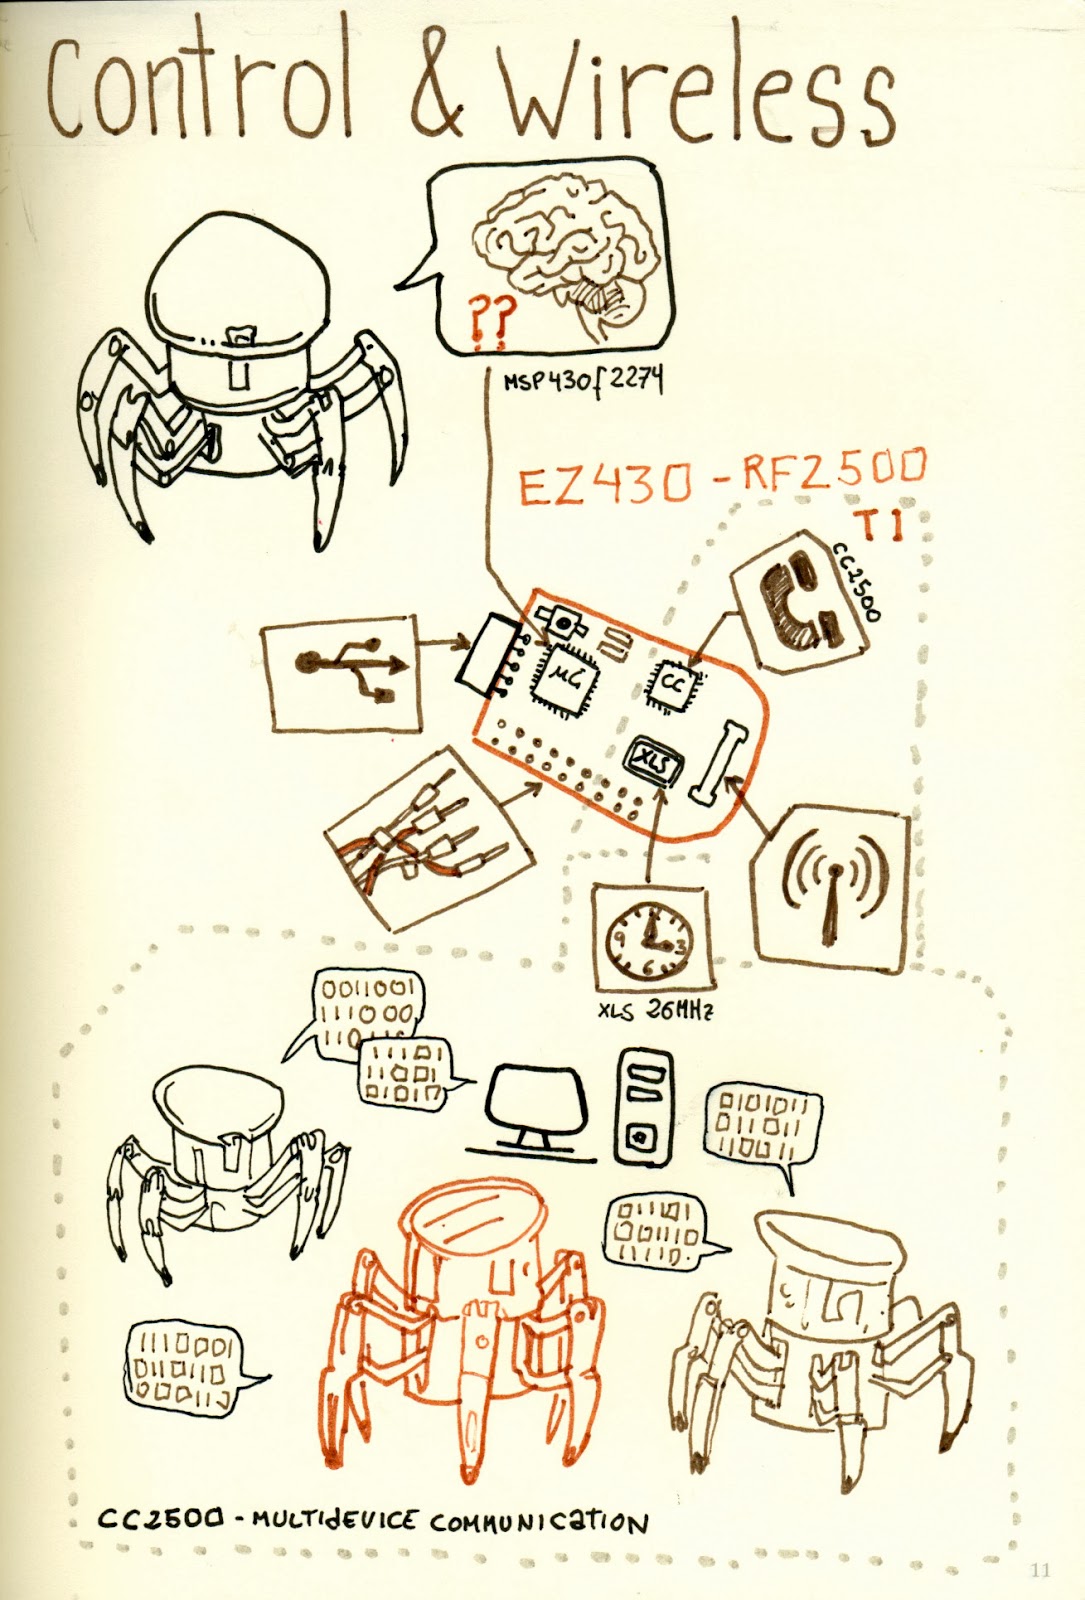 Control & Wireless
??
MSP430f2274
EZ430 - RF2500
TI
CC2500
µC
CC
XLS
9 3
6
XLS 26MHz
0011001
111000
1110
11101
11001
01011
0101011
110
01110
1110001
CC2500 - MULTIdEVICE COMMUNICATION
11